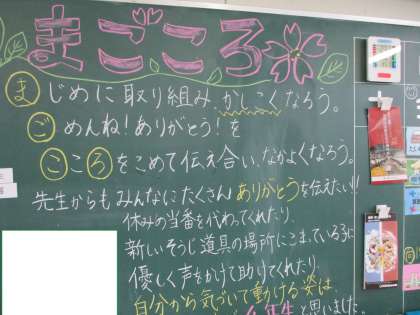 まごころ
まじめに取り組み、かしこくなろう。
ごめんね!ありがとう!を
こころをこめて伝え合い、なかよくなろう。
先生からもみんなにたくさんありがとうを伝えたい!!
休みの当番を代わってくれたり、
新しいそうじ道具の場所にこまっている子に
優しく声をかけて助けてくれたり、
自分から気づいて動ける姿は
年生と思いました。